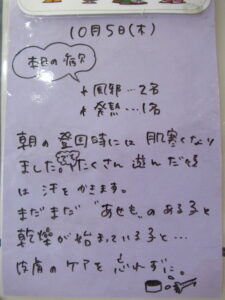 10月5日(木)
本日の病欠
* 風邪…2名
* 発熱…1名
朝の登園時には肌寒くなり
ました。たくさん遊んだ後
は汗をかきます。
まだまだ"あせも"のある子と
乾燥が始まっている子と…
皮膚のケアを忘れずに。